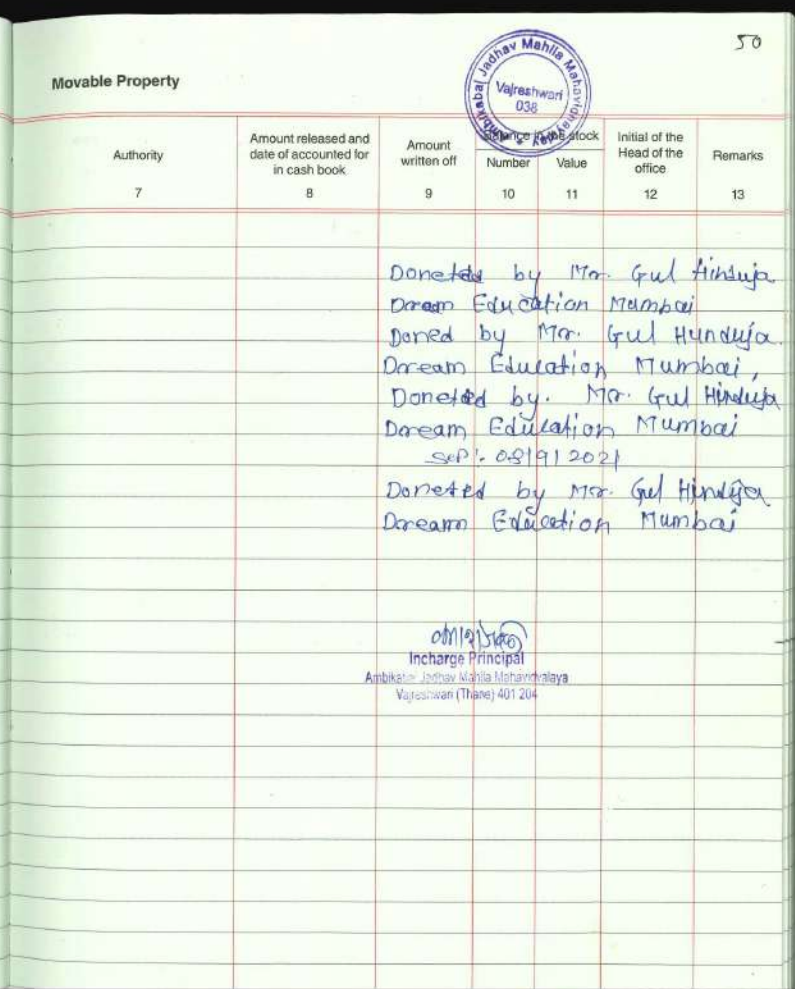 50
Movable Property
Ambikabai Jadhav Mahila Mahavidyalay
Vajreshwari
038
Authority
Amount released and
date of accounted for
in cash book
Amount
written off
Balance in the stock
Number
Value
Initial of the
Head of the
office
Remarks
7 8 9 10 11 12 13
Doneted by Mr. Gul Hinduja
Dream Education Mumbai
Doned by Mr. Gul Hunduja.
Dream Education Mumbai,
Doneted by. Mr. Gul Hinduja
Dream Education Mumbai
08/9/2021
Doneted by Mr. Gul Hinduja
Dream Education Mumbai
Incharge Principal
Ambikabai Jadhav Mahila Mahavidyalaya
Vajreshwari (Thane) 401 204